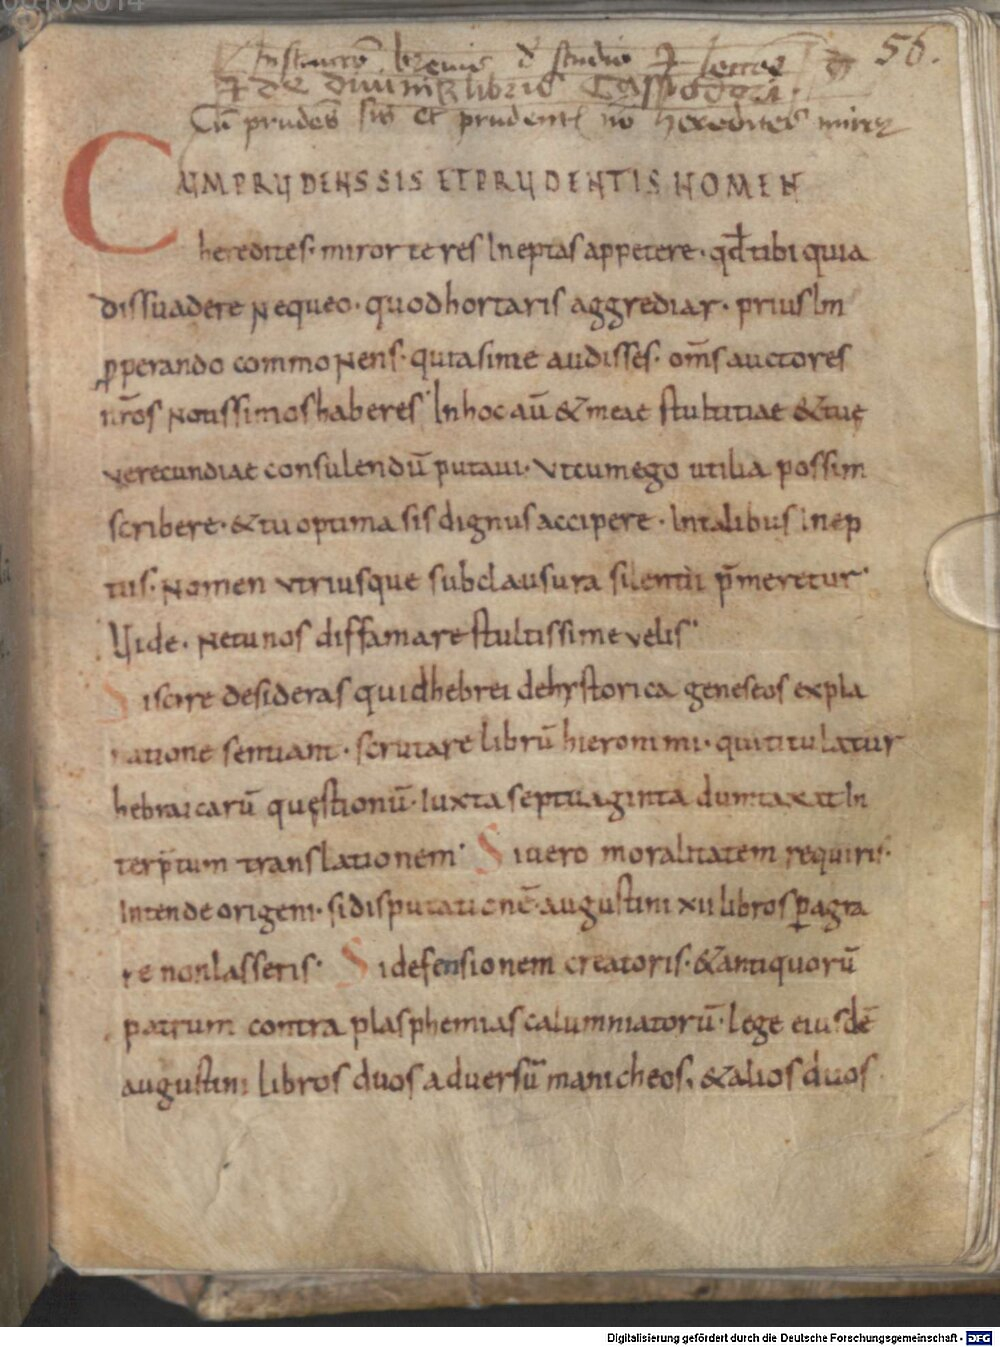 56.
Instructio brevis de studio
et de divinis libris Cassiodori.
Cū prudēs sis et prudentis nō hereditēs miror
CUM PRUDENS SIS ET PRUDENTIS NOMEN
heredites· miror te res ineptas appetere· qđ tibi quia
dissuadere nequeo· quod hortaris aggrediar· prius in
ꝓperando commonens· quia si me audisses· om̄s auctores
nr̄os notissimos haberes· In hoc aū & meae stultitiae & tuę
verecundiae consulendū putavi· vt cum ego utilia possim
scribere· & tu optima sis dignus accipere· In talibus inep
tus· nomen vtriusque sub clausura silentii p̄meretur·
Vide· ne tu nos diffamare stultissime velis·
Si scire desideras quid hebrei de hystorica geneseos expla
natione sentiant· scrutare librū hieronimi· qui titulatur
hebraicarū quęstionū· Iuxta septuaginta dumtaxat in
terp̄tum translationem· Si vero moralitatem requiris·
Intende origeni· si disputationē· augustini xii libros ꝑagra
re non lasseris· Si defensionem creatoris· & antiquorū
patrum contra plasphemias calumniatorū· lege eiusdē
augustini libros duos adversū manicheos, & alios duos
Digitalisierung gefördert durch die Deutsche Forschungsgemeinschaft - DFG